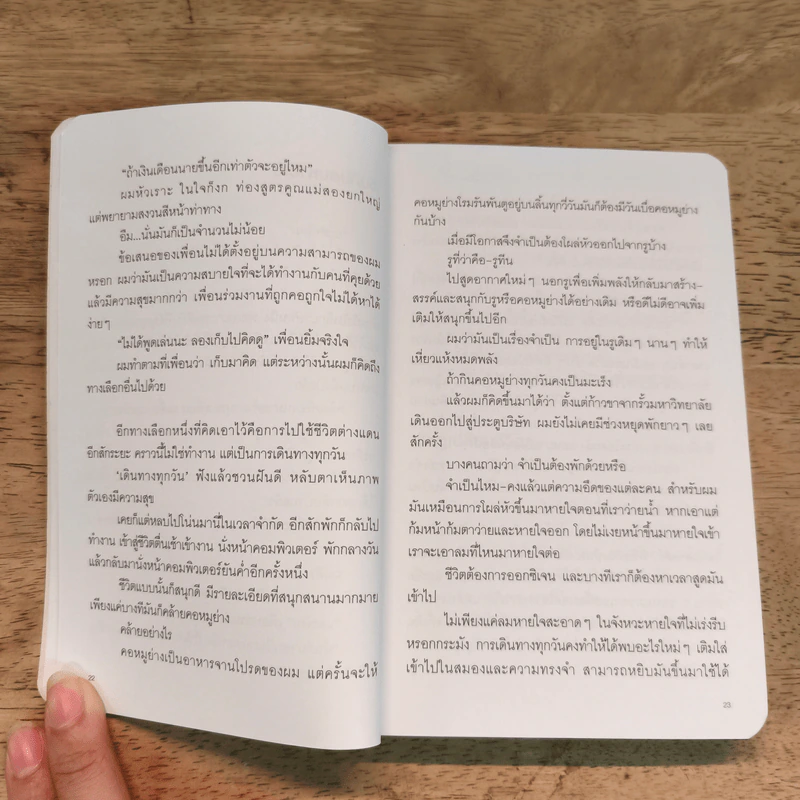 “ถ้าเงินเดือนนายขึ้นอีกเท่าตัวจะอยู่ไหม”
ผมหัวเราะ ในใจก็งก ท่องสูตรคูณแม่สองยกใหญ่
แต่พยายามสงวนสีหน้าท่าทาง
อืม...นั่นมันก็เป็นจำนวนไม่น้อย
ข้อเสนอของเพื่อนไม่ได้ตั้งอยู่บนความสามารถของผม
หรอก ผมว่ามันเป็นความสบายใจที่จะได้ทำงานกับคนที่คุยด้วย
แล้วมีความสุขมากกว่า เพื่อนร่วมงานที่ถูกคอถูกใจไม่ได้หาได้
ง่ายๆ
“ไม่ได้พูดเล่นนะ ลองเก็บไปคิดดู” เพื่อนยิ้มจริงใจ
ผมทำตามที่เพื่อนว่า เก็บมาคิด แต่ระหว่างนั้นผมก็คิดถึง
ทางเลือกอื่นไปด้วย
อีกทางเลือกหนึ่งที่คิดเอาไว้คือการไปใช้ชีวิตต่างแดน
อีกสักระยะ คราวนี้ไม่ใช่ทำงาน แต่เป็นการเดินทางทุกวัน
‘เดินทางทุกวัน’ ฟังแล้วชวนฝันดี หลับตาเห็นภาพ
ตัวเองมีความสุข
เคยก็แต่หลบไปโน่นมานี่ในเวลาจำกัด อีกสักพักก็กลับไป
ทำงาน เข้าสู่ชีวิตตื่นเช้าเข้างาน นั่งหน้าคอมพิวเตอร์ พักกลางวัน
แล้วกลับมานั่งหน้าคอมพิวเตอร์ยันค่ำอีกครั้งหนึ่ง
ชีวิตแบบนั้นก็สนุกดี มีรายละเอียดที่สนุกสนานมากมาย
เพียงแค่บางทีมันก็คล้ายคอหมูย่าง
คล้ายอย่างไร
คอหมูย่างเป็นอาหารจานโปรดของผม แต่ครั้นจะให้
22
คอหมูย่างโรมรันพันตูอยู่บนลิ้นทุกวี่วันมันก็ต้องมีวันเบื่อคอหมูย่าง
กันบ้าง
เมื่อมีโอกาสจึงจำเป็นต้องโผล่หัวออกไปจากรูบ้าง
รูที่ว่าคือ-รูทีน
ไปสูดอากาศใหม่ๆ นอกรูเพื่อเพิ่มพลังให้กลับมาสร้าง-
สรรค์และสนุกกับรูหรือคอหมูย่างได้อย่างเดิม หรือดีไม่ดีอาจเพิ่ม
เติมให้สนุกขึ้นไปอีก
ผมว่ามันเป็นเรื่องจำเป็น การอยู่ในรูเดิมๆ นานๆ ทำให้
เหี่ยวแห้งหมดพลัง
ถ้ากินคอหมูย่างทุกวันคงเป็นมะเร็ง
แล้วผมก็คิดขึ้นมาได้ว่า ตั้งแต่ก้าวขาจากรั้วมหาวิทยาลัย
เดินออกไปสู่ประตูบริษัท ผมยังไม่เคยมีช่วงหยุดพักยาวๆ เลย
สักครั้ง
บางคนถามว่า จำเป็นต้องพักด้วยหรือ
จำเป็นไหม-คงแล้วแต่ความอึดของแต่ละคน สำหรับผม
มันเหมือนการโผล่หัวขึ้นมาหายใจตอนที่เราว่ายน้ำ หากเอาแต่
ก้มหน้าก้มตาว่ายและหายใจออก โดยไม่เงยหน้าขึ้นมาหายใจเข้า
เราจะเอาลมที่ไหนมาหายใจต่อ
ชีวิตต้องการออกซิเจน และบางทีเราก็ต้องหาเวลาสูดมัน
เข้าไป
ไม่เพียงแค่ลมหายใจสะอาดๆ ในจังหวะหายใจที่ไม่เร่งรีบ
หรอกกระมัง การเดินทางทุกวันคงทำให้ได้พบอะไรใหม่ๆ เติมใส่
เข้าไปในสมองและความทรงจำ สามารถหยิบมันขึ้นมาใช้ได้
23